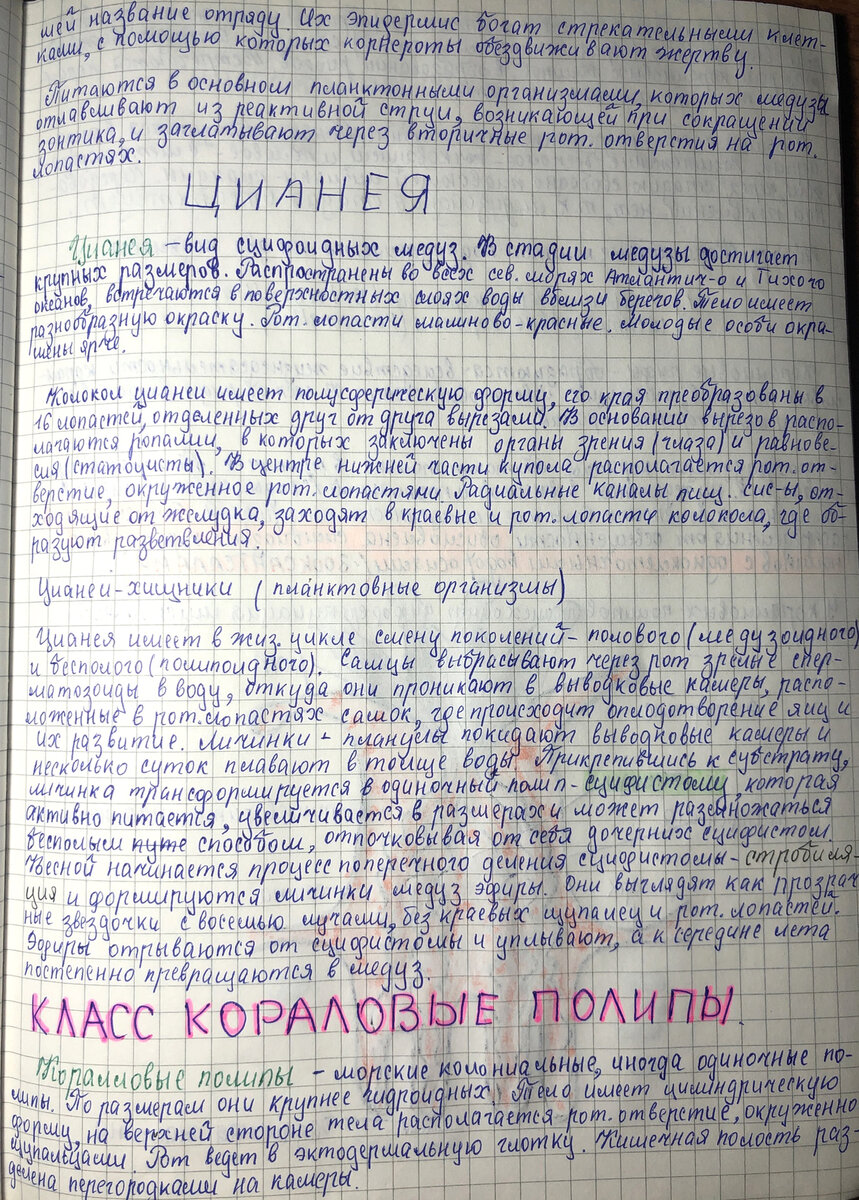 шей название отряду. Их эпидермис богат стрекательными клет-
ками, с помощью которых корнероты обездвиживают жертву.
Питаются в основном планктонными организмами, которых медузы
отлавливают из реактивной струи, возникающей при сокращении
зонтика, и заглатывают через вторичные рот. отверстия на рот.
лопастях.
ЦИАНЕЯ
Цианея – вид сцифоидных медуз. В стадии медузы достигает
крупных размеров. Распространены во всех сев. морях Атлантич-о и Тихого
океанов, встречаются в поверхностных слоях воды вблизи берегов. Тело имеет
разнообразную окраску. Рот. лопасти малиново-красные. Молодые особи окра-
шены ярче.
Колокол цианеи имеет полусферическую форму, его края преобразованы в
16 лопастей, отделенных друг от друга вырезами. В основании вырезов распо-
лагаются ропалии, в которых заключены органы зрения (глаза) и равнове-
сия (статоцисты). В центре нижней части купола располагается рот. от-
верстие, окруженное рот. лопастями. Радиальные каналы пищ. сис-ы, от-
ходящие от желудка, заходят в краевые и рот. лопасти колокола, где об-
разуют разветвления.
Цианеи-хищники (планктовные организмы)
Цианея имеет в жиз. цикле смену поколений – полового (медузоидного)
и бесполого (полипоидного). Самцы выбрасывают через рот зрелые спер-
матозоиды в воду, откуда они проникают в выводковые камеры, распо-
ложенные в рот. лопастях самок, где происходит оплодотворение яиц и
их развитие. Личинки - планулы покидают выводковые камеры и
несколько суток плавают в толще воды. Прикрепившись к субстрату,
личинка трансформируется в одиночный полип-сцифистому, которая
активно питается, увеличивается в размерах и может размножаться
бесполым путе способом, отпочковывая от себя дочерних сцифистом.
Весной начинается процесс поперечного деления сцифистомы – стробиля-
ция и формируются личинки медуз эфиры. Они выглядят как прозрач
ные звездочки с восемью лучами, без краевых щупалец и рот. лопастей.
Эфиры отрываются от сцифистомы и уплывают, а к середине лета
постепенно превращаются в медуз.
КЛАСС КОРАЛОВЫЕ ПОЛИПЫ.
Коралловые полипы – морские колониальные, иногда одиночные по-
липы. По размерам они крупнее гидроидных. Тело имеет цилиндрическую
форму, на верхней стороне тела располагается рот. отверстие, окруженно
щупальцами. Рот ведет в эктодермальную глотку. Кишечная полость раз-
делена перегородками на камеры.